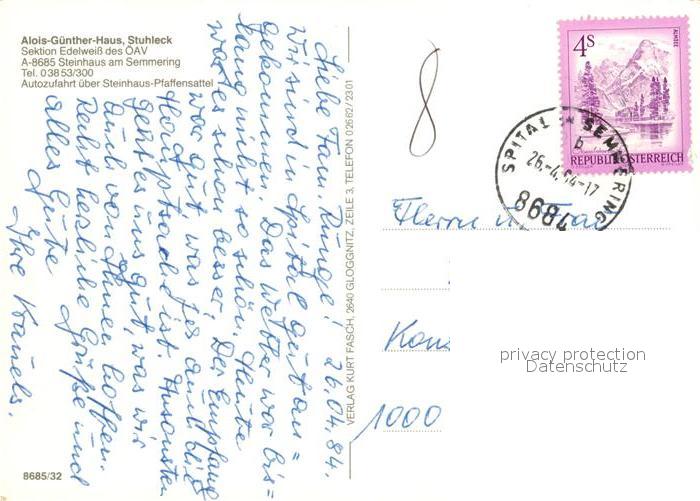 Alois-Günther-Haus, Stuhleck
Sektion Edelweiß des ÖAV
A-8685 Steinhaus am Semmering
Tel. 03853/300
Autozufahrt über Steinhaus-Pfaffensattel
26.04.84.
Liebe Fam. Runge!
Wir sind in Spital gut an=
gekommen. Das Wetter war bis=
lang nicht so schön. Heute
war es schon besser. Der Empfang
war gut was ja auch die
Hauptsache ist. Ansonsten
geht es uns gut, was wir
auch von Ihnen hoffen.
Recht herzliche Grüße und
alles Gute
Ihre
8685/32
VERLAG KURT FASCH, 2640 GLOGGNITZ, ZEILE 3, TELEFON 02662/2301
8
4 S
ALMSEE
REPUBLIK ÖSTERREICH
SPITAL A. SEMMERING
b
26.-4.84-17
8684
Herrn u. Frau
1000
privacy protection
Datenschutz